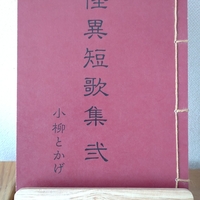 怪異短歌集 弐
小柳とかげ